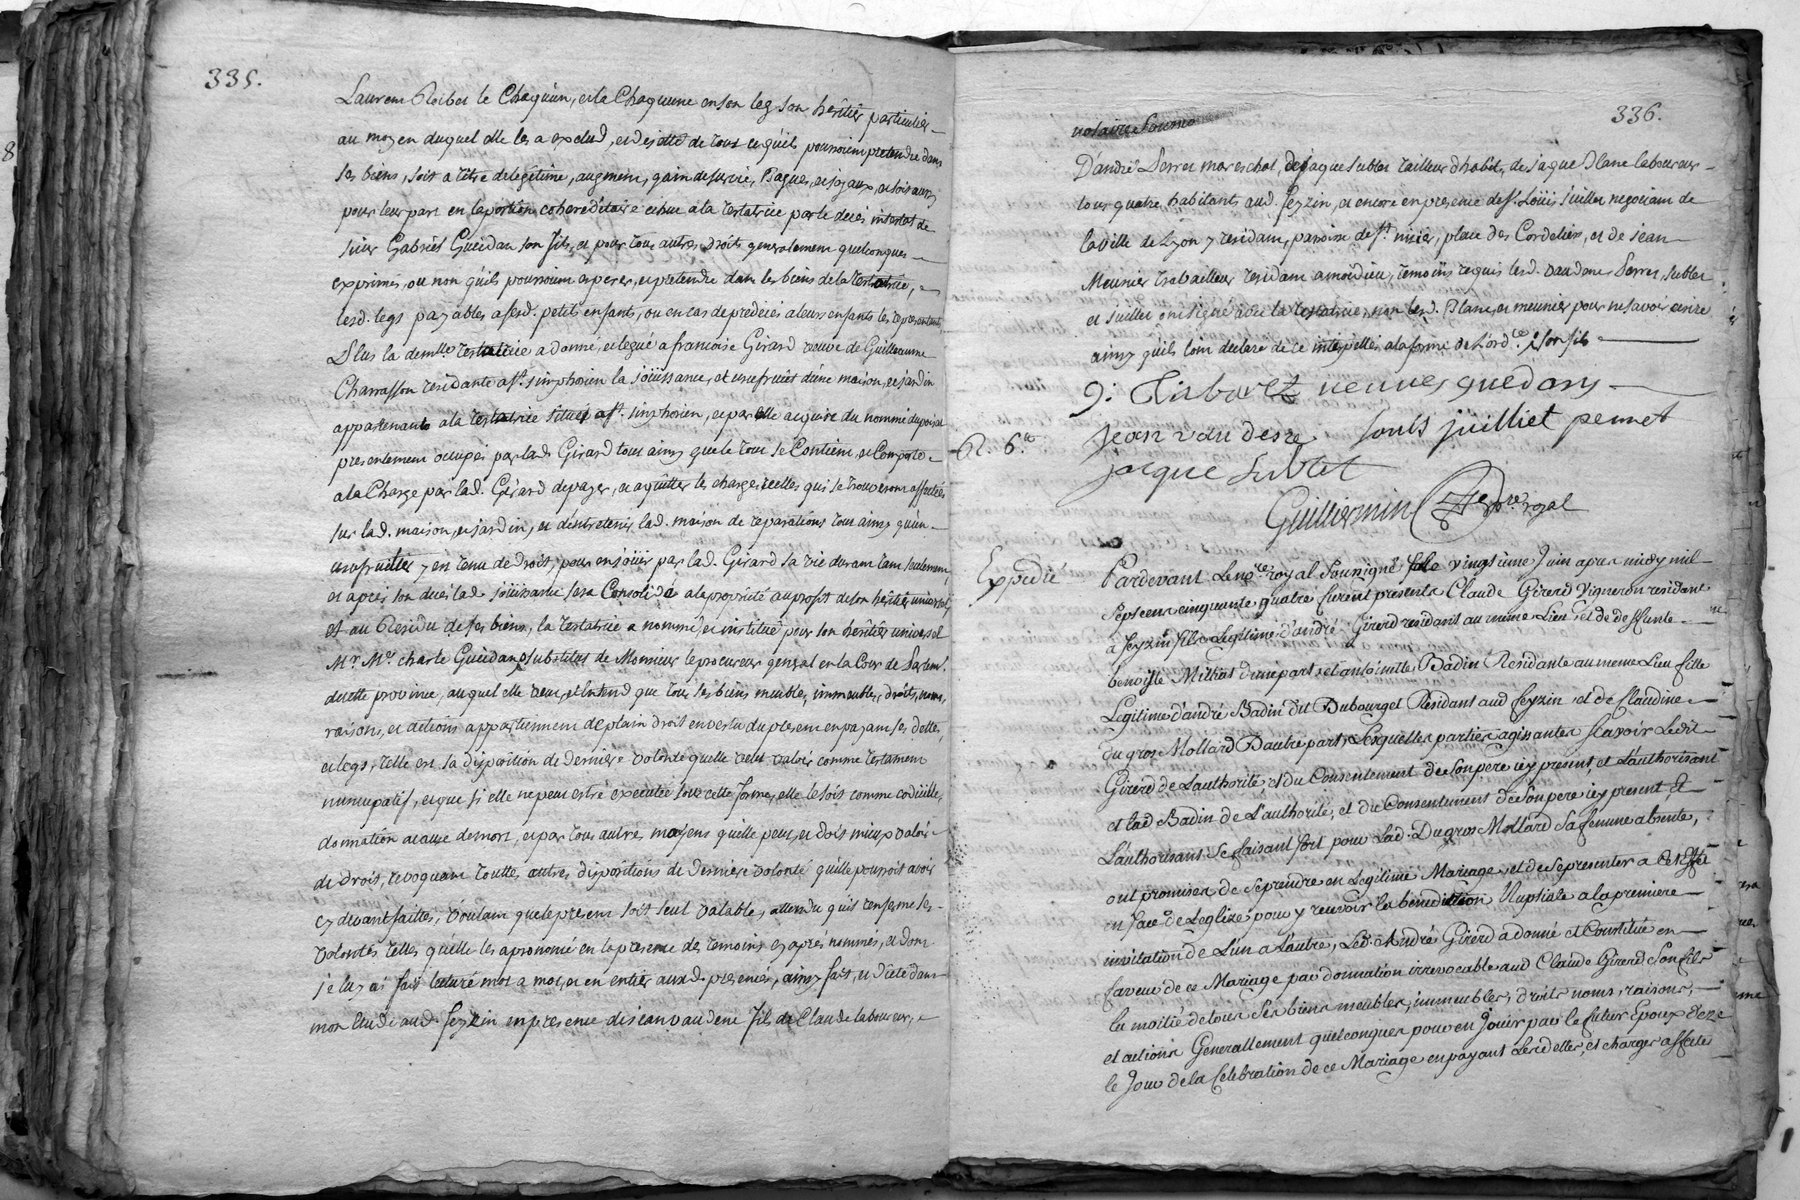 335.
Laurent Reibet le Chaquun, et la Chaquune en son leg son heritier particulier
au moyen duquel elle les a exclud, et dejetté de tout ce qu'ils pourroient pretendre dans
ses biens, soit a titre de legitime, augment, gain de survie, Bagues, et joyaux, et soit aussy
pour leur part en la portion cohereditaire echue a la testatrice par le decés intestat de
sieur Gabriel Gueidan son fils, et pour tous autres droits generalement quelconques
exprimés, ou non qu'ils pourroient esperer, et pretendre dans les biens de la testatrice,
lesd. legs payables a sesd. petits enfants, ou en cas de predecés a leurs enfants les representant
Plus la demlle testatrice a donné, et legué a francoise Girard veuve de Guilleaume
Charrasson residante a st. simphorien la joüissance, et usufruict d'une maison, et jardin
appartenants a la testatrice situés a st. simphorien, et par elle acquise du nommé dupoisat
presentement ocupés par lad. Girard tout ainsy que le tout se Contient, et Comporte
a la Charge par lad. Girard de payer, et aquitter les charges reelles qui se trouveront affectées
sur lad. maison, et jardin, et d'entretenir lad. maison de reparations tout ainsy qu'un
usufruitier y en tenu de droit, pour en joüir par lad. Girard sa vie durant tant seulement,
et aprés son decés lad. joüissance sera Consolidée a la proprieté au profit de son heritier universel
et au Residu de ses biens, la testatrice a nommé, et institué pour son heritier universel
Mr. Me. charle Gueidan substitut de Monsieur le procureur general en la Cour de Parlemt.
de cette province, auquel elle veut, et entend que tous ses biens meubles, immeubles, droits, noms,
raisons, et actions appartiennent de plain droit en vertu du present en payant ses dettes,
et legs, telle est sa disposition de derniere volonté quelle veut valoir comme testament
nuncupatif, et que si elle ne peut estre executée sous cette forme, elle le soit comme codicille,
donnation a cause de mort, et par tous autres moyens qu'elle peut, et doit mieux valoir
de droit, revoquant toutes autres dispositions de derniere volonté qu'elle pourroit avoir
cy devant faittes, voulant que le present soit seul valable, attendu qu'il renferme ses
volontés telles qu'elle les a prononcé en la presence de temoins cy aprés nommés, et dont
je luy ai fait lecture mot a mot, et en entier auxd. presences, ainsy fait, et dicté dans
mon etude aud. feyzin en presence de jean vaudene fils de Claude laboureur,
336.
notaire
D'andré Serret mareschal, de jaque sublet tailleur d'habits, de jaque Plane laboureur
tous quatre habitants aud. feyzin, et encore en presence de sr. Loüis juillet negociant de
la ville de Lyon y residant, paroisse de st. nizier, place des Cordeliers, et de jean
Meunier travailleur residant a mondieu, temoins requis lesd. vaudene Serret, sublet
et juillet ont signé avec la testatrice, non lesd. Plane, et meunier pour ne savoir ecrire
ainsy qu'ils l'ont declaré de ce interpellés a la forme de l'ordce. & son fils
J: Tabaret veuve guedan
jean vaudesne louis juilliet perret
R. 6tt
jacque sublet
Guilliermin Nre royal
Expedié
Pardevant Le nore royal Sousigné le vingtieme Juin apres midy mil
sept cent cinquante quatre furent presents Claude Girerd Vigneron resident
a feyzin fils Legitime d'andré Girerd residant au meme Lieu, et de deffunte
benoiste Milliat d'une part, et antoinette Badin Residante au meme Lieu fille
Legitime d'andré Badin dit Dubourget Residant aud feyzin et de Claudine
Du gros Mollard D'autre part, Lesquelles parties agissantes scavoir Ledit
Girerd de L'authorité, et du Consentement de Son pere icy present, et L'authorisant
et lad Badin de L'authorité, et du Consentement de Son pere icy present, et
L'authorisant Se faisant fort pour Lad. Du gros Mollard Sa femme absente,
ont promises de Se prendre en Legitime Mariage, et de Se presenter a cet effet
en face de L'eglise pour y recevoir la benediction Nuptiale a la premiere
invitation de L'un a L'autre, Led. André Girerd a donné et Constitué en
faveur de ce Mariage par donnation irrevocable aud Claude Girerd Son fils
la moitié de tous Ses biens meubles, immeubles, droits noms, raisons,
et actions Generallement quelconques pour en Jouir par le futur Epoux dez
le Jour de la Celebration de ce Mariage en payant Les dettes, et charges affecté